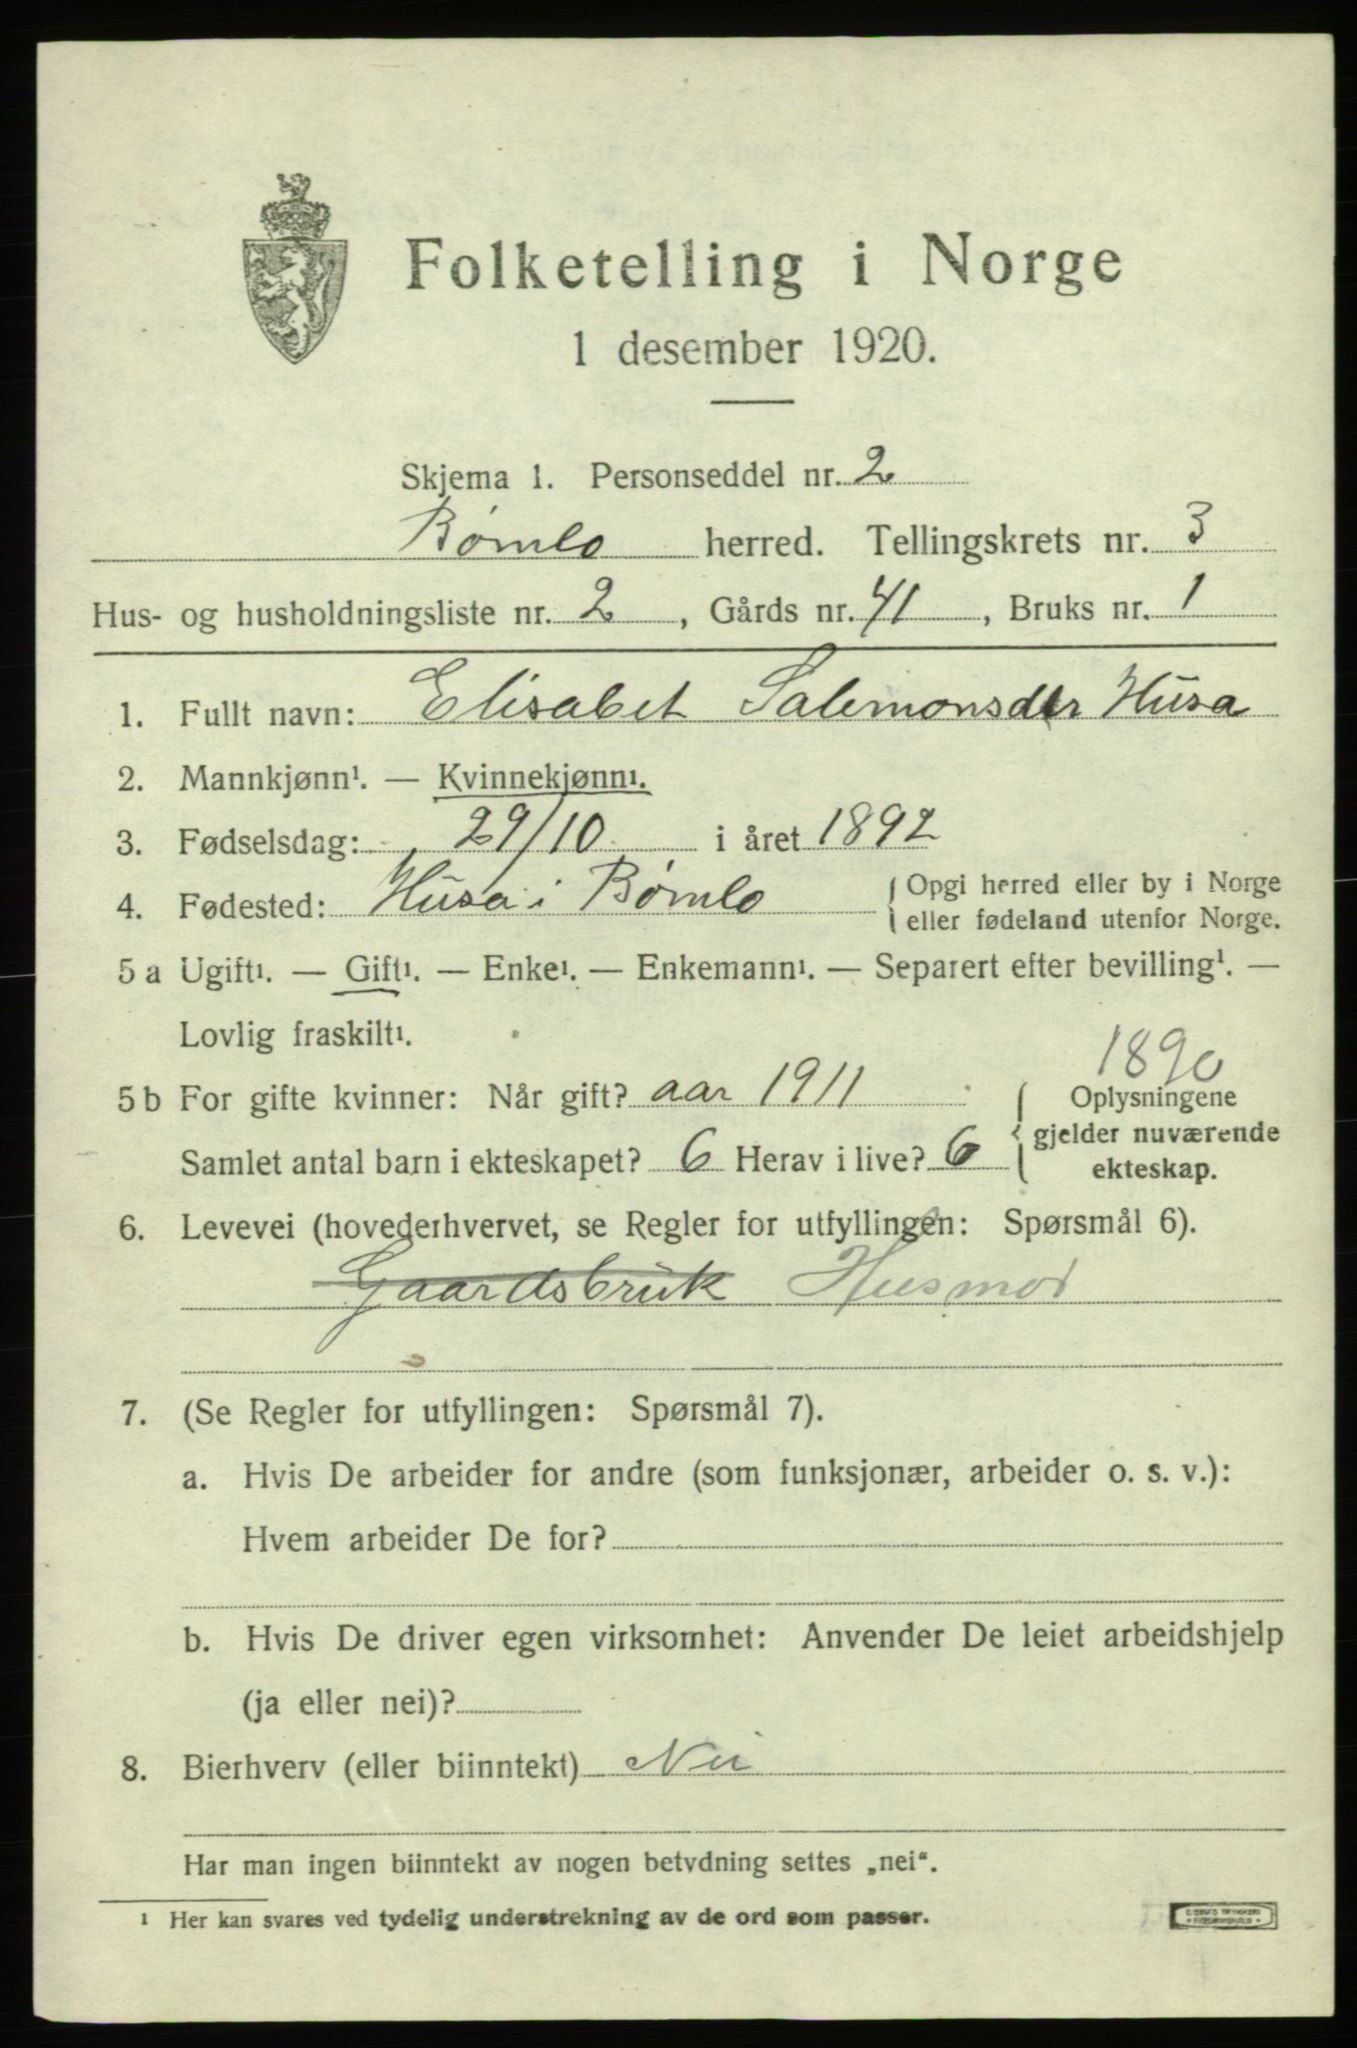 Folketelling i Norge
1 desember 1920.
Skjema 1. Personseddel nr. 2
Bømlo herred. Tellingskrets nr. 3
Hus- og husholdningsliste nr. 2, Gårds nr. 41, Bruks nr. 1
1. Fullt navn: Elisabet Salemonsdtr Husa
2. Mannkjønn¹. — Kvinnekjønn¹.
3. Fødselsdag: 29/10 i året 1892
4. Fødested: Husa i Bømlo { Opgi herred eller by i Norge
eller fødeland utenfor Norge.
5 a Ugift¹. — Gift¹. — Enke¹. — Enkemann¹. — Separert efter bevilling¹. —
Lovlig fraskilt¹.
1890
5 b For gifte kvinner: Når gift? aar 1911 { Oplysningene
gjelder nuværende
Samlet antal barn i ekteskapet? 6 Herav i live? 6
ekteskap.
6. Levevei (hovederhvervet, se Regler for utfyllingen: Spørsmål 6).
Gaardsbruk Husmor
7. (Se Regler for utfyllingen: Spørsmål 7).
a. Hvis De arbeider for andre (som funksjonær, arbeider o. s. v.):
Hvem arbeider De for?
b. Hvis De driver egen virksomhet: Anvender De leiet arbeidshjelp
(ja eller nei)?
8. Bierhverv (eller biinntekt) Nei
Har man ingen biinntekt av nogen betydning settes „nei“.
¹ Her kan svares ved tydelig understrekning av de ord som passer.